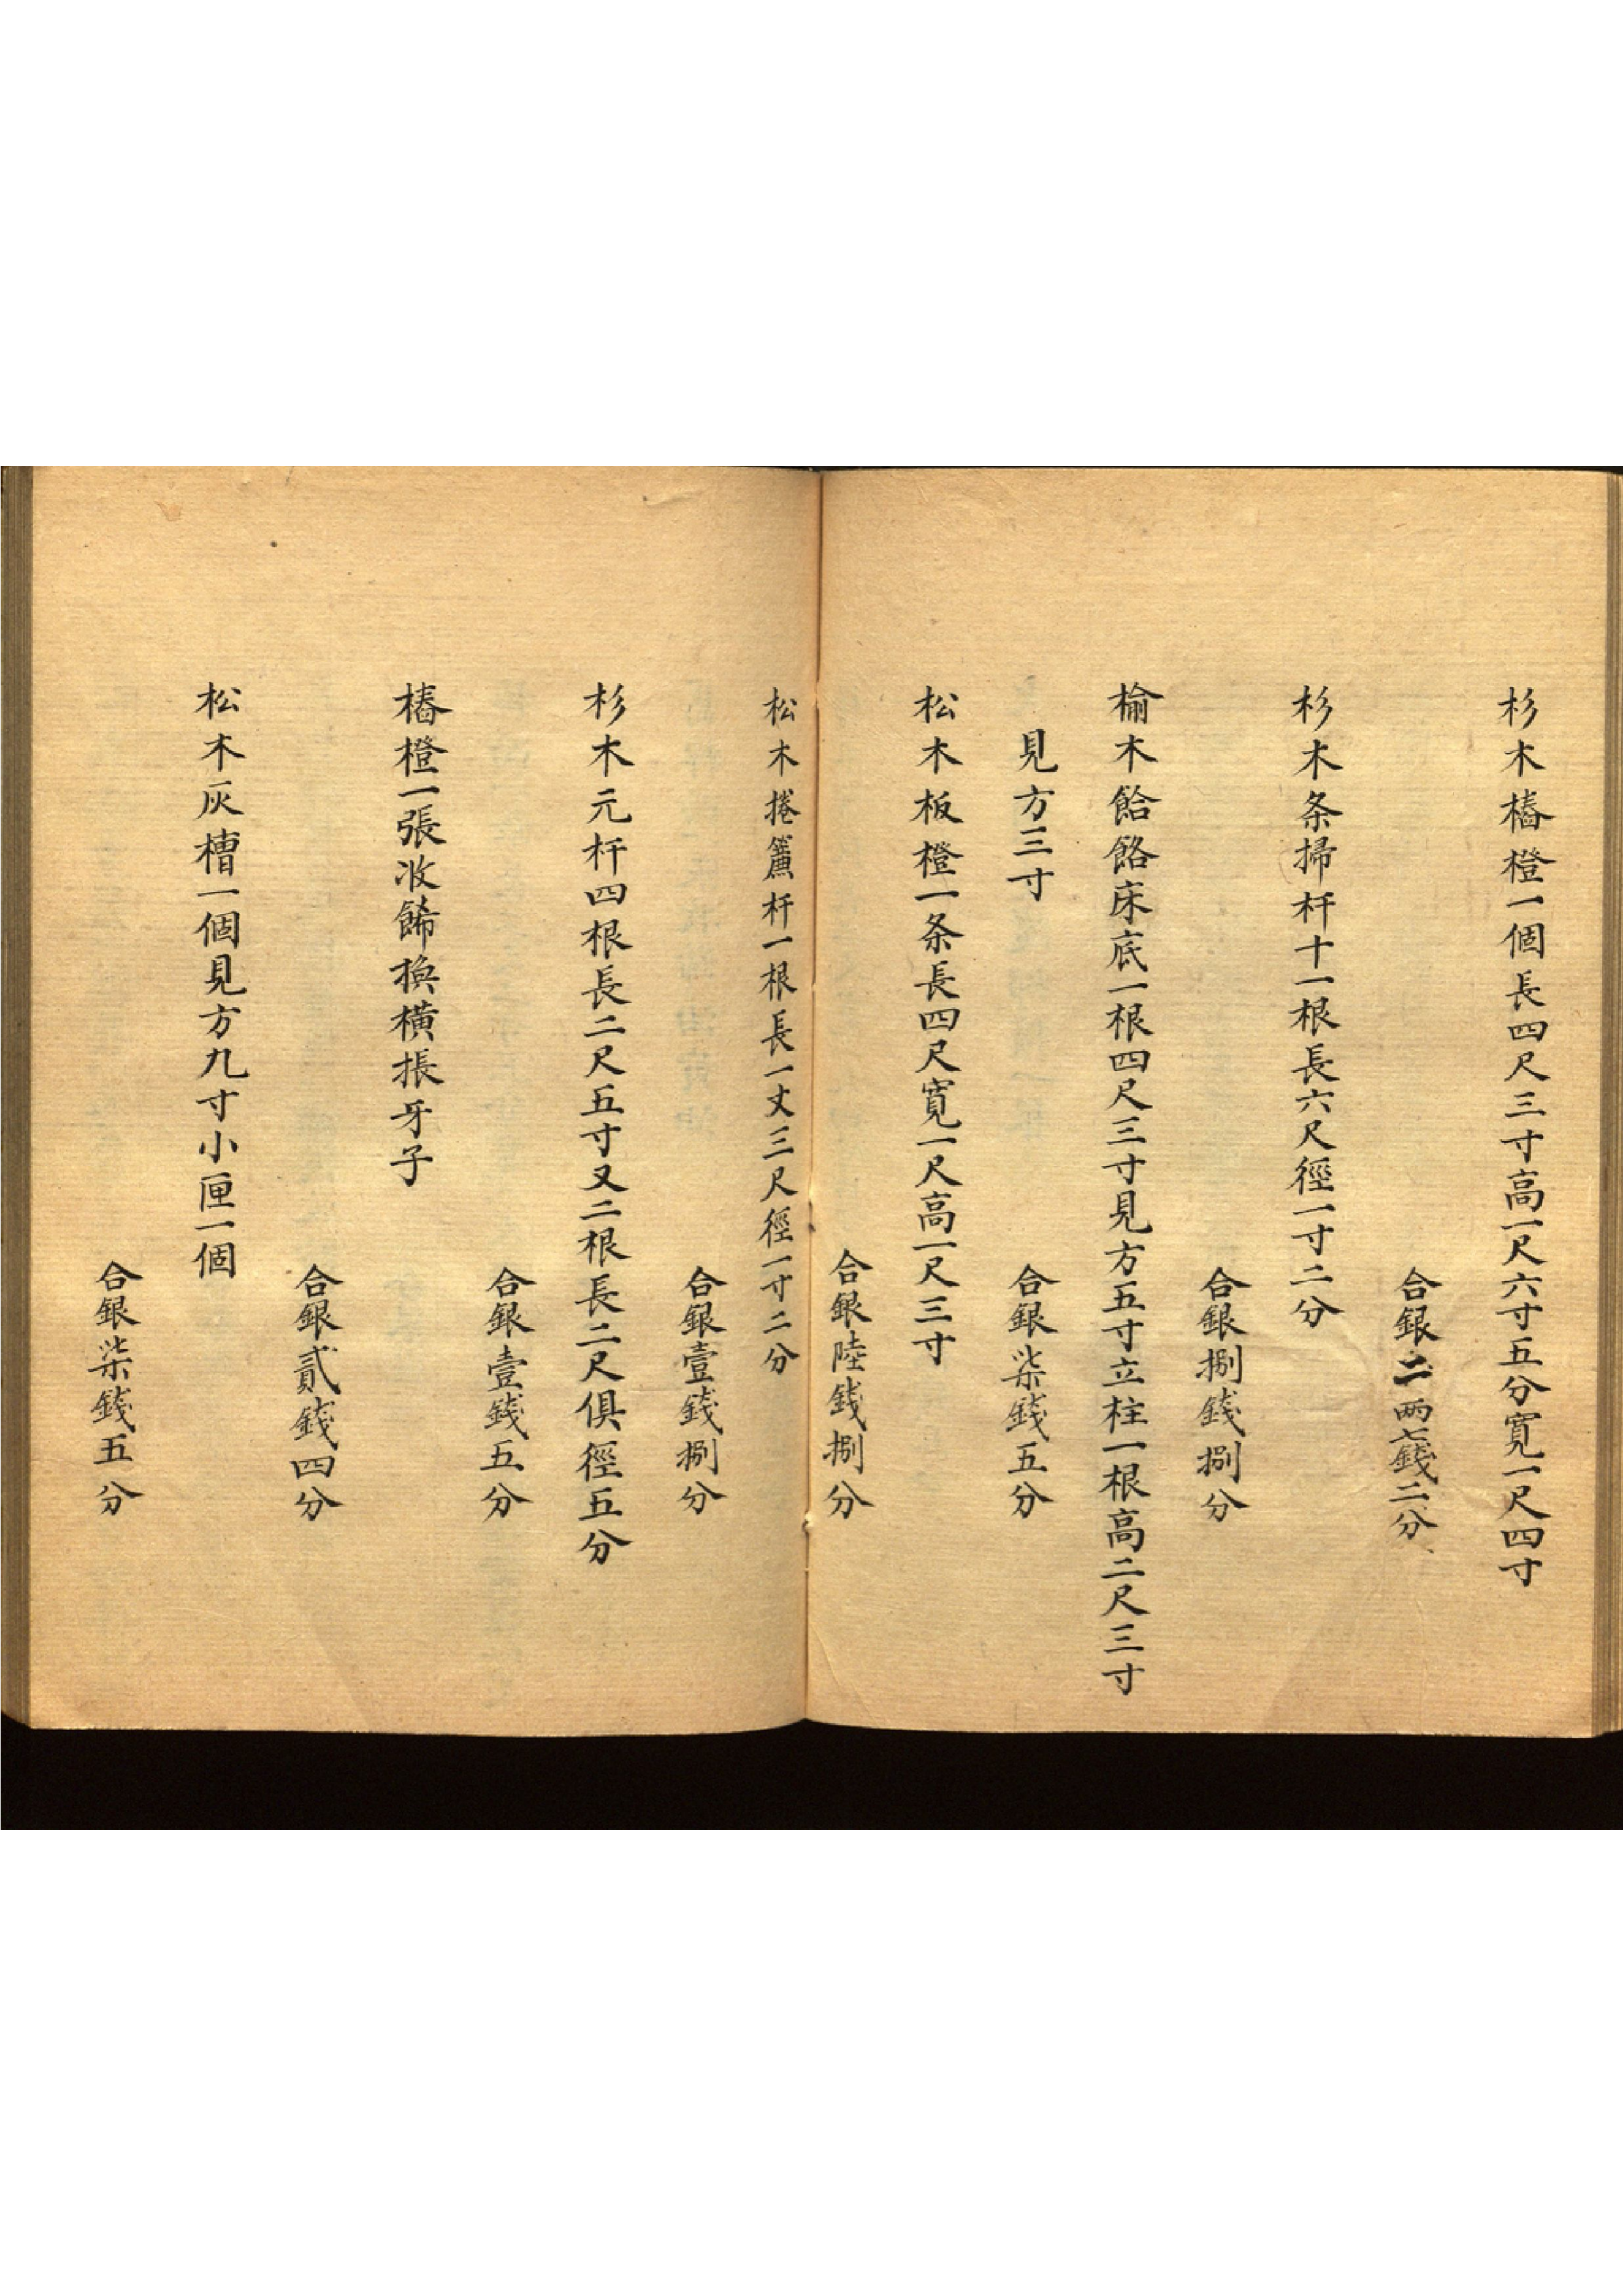 杉木樁橙一個長四尺三寸高一尺六寸五分寬一尺四寸
合銀二両七錢二分
杉木条掃杆十一根長六尺徑一寸二分
合銀捌錢捌分
榆木餄餎床底一根四尺三寸見方五寸立柱一根高二尺三寸
見方三寸
合銀柒錢五分
松木板橙一条長四尺寬一尺高一尺三寸
合銀陸錢捌分
松木捲簾杆一根長一丈三尺徑一寸二分
合銀壹錢捌分
杉木元杆四根長二尺五寸又二根長二尺俱徑五分
合銀壹錢五分
樁橙一張收餙換橫掁牙子
合銀貳錢四分
松木灰槽一個見方九寸小匣一個
合銀柒錢五分